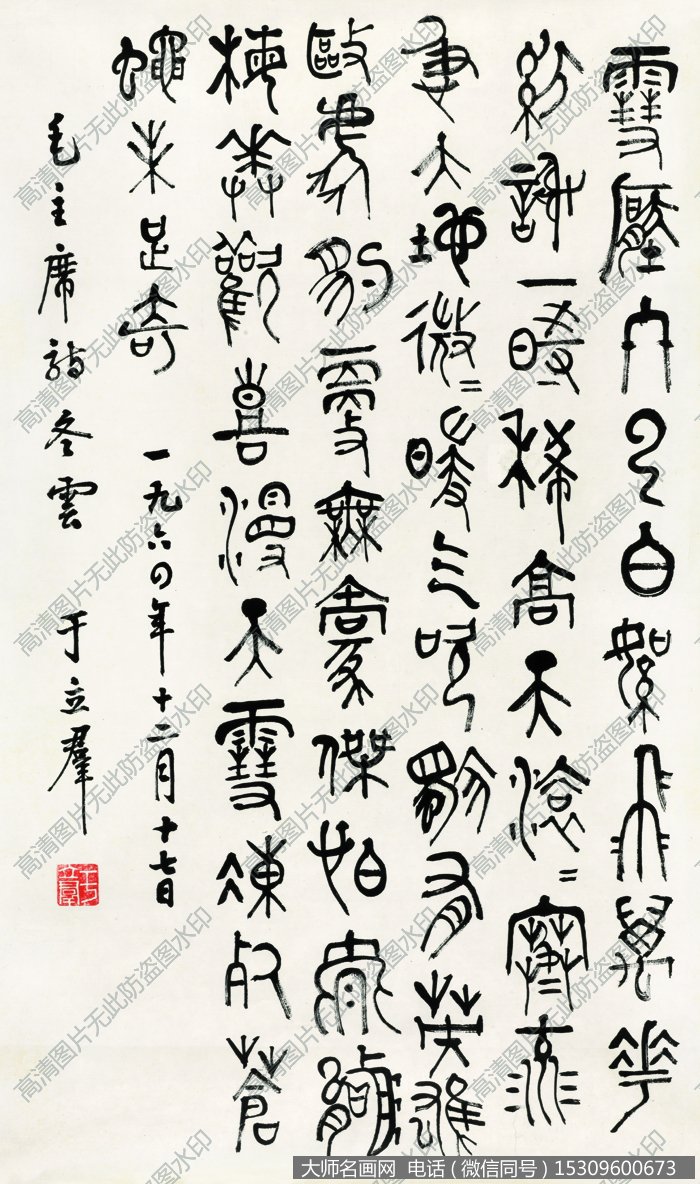 雪壓冬雲白絮飛萬花
紛謝一時稀高天滾〻寒流
急大地微〻暖气吹獨有英雄
驅虎豹更無豪傑怕熊羆
梅花歡喜漫天雪凍死蒼
蠅未足奇 一九六〇年十二月十七日
毛主席詩冬雲 于立羣
高清图片无此防盗图水印
大师名画网 电话（微信同号）15309600673